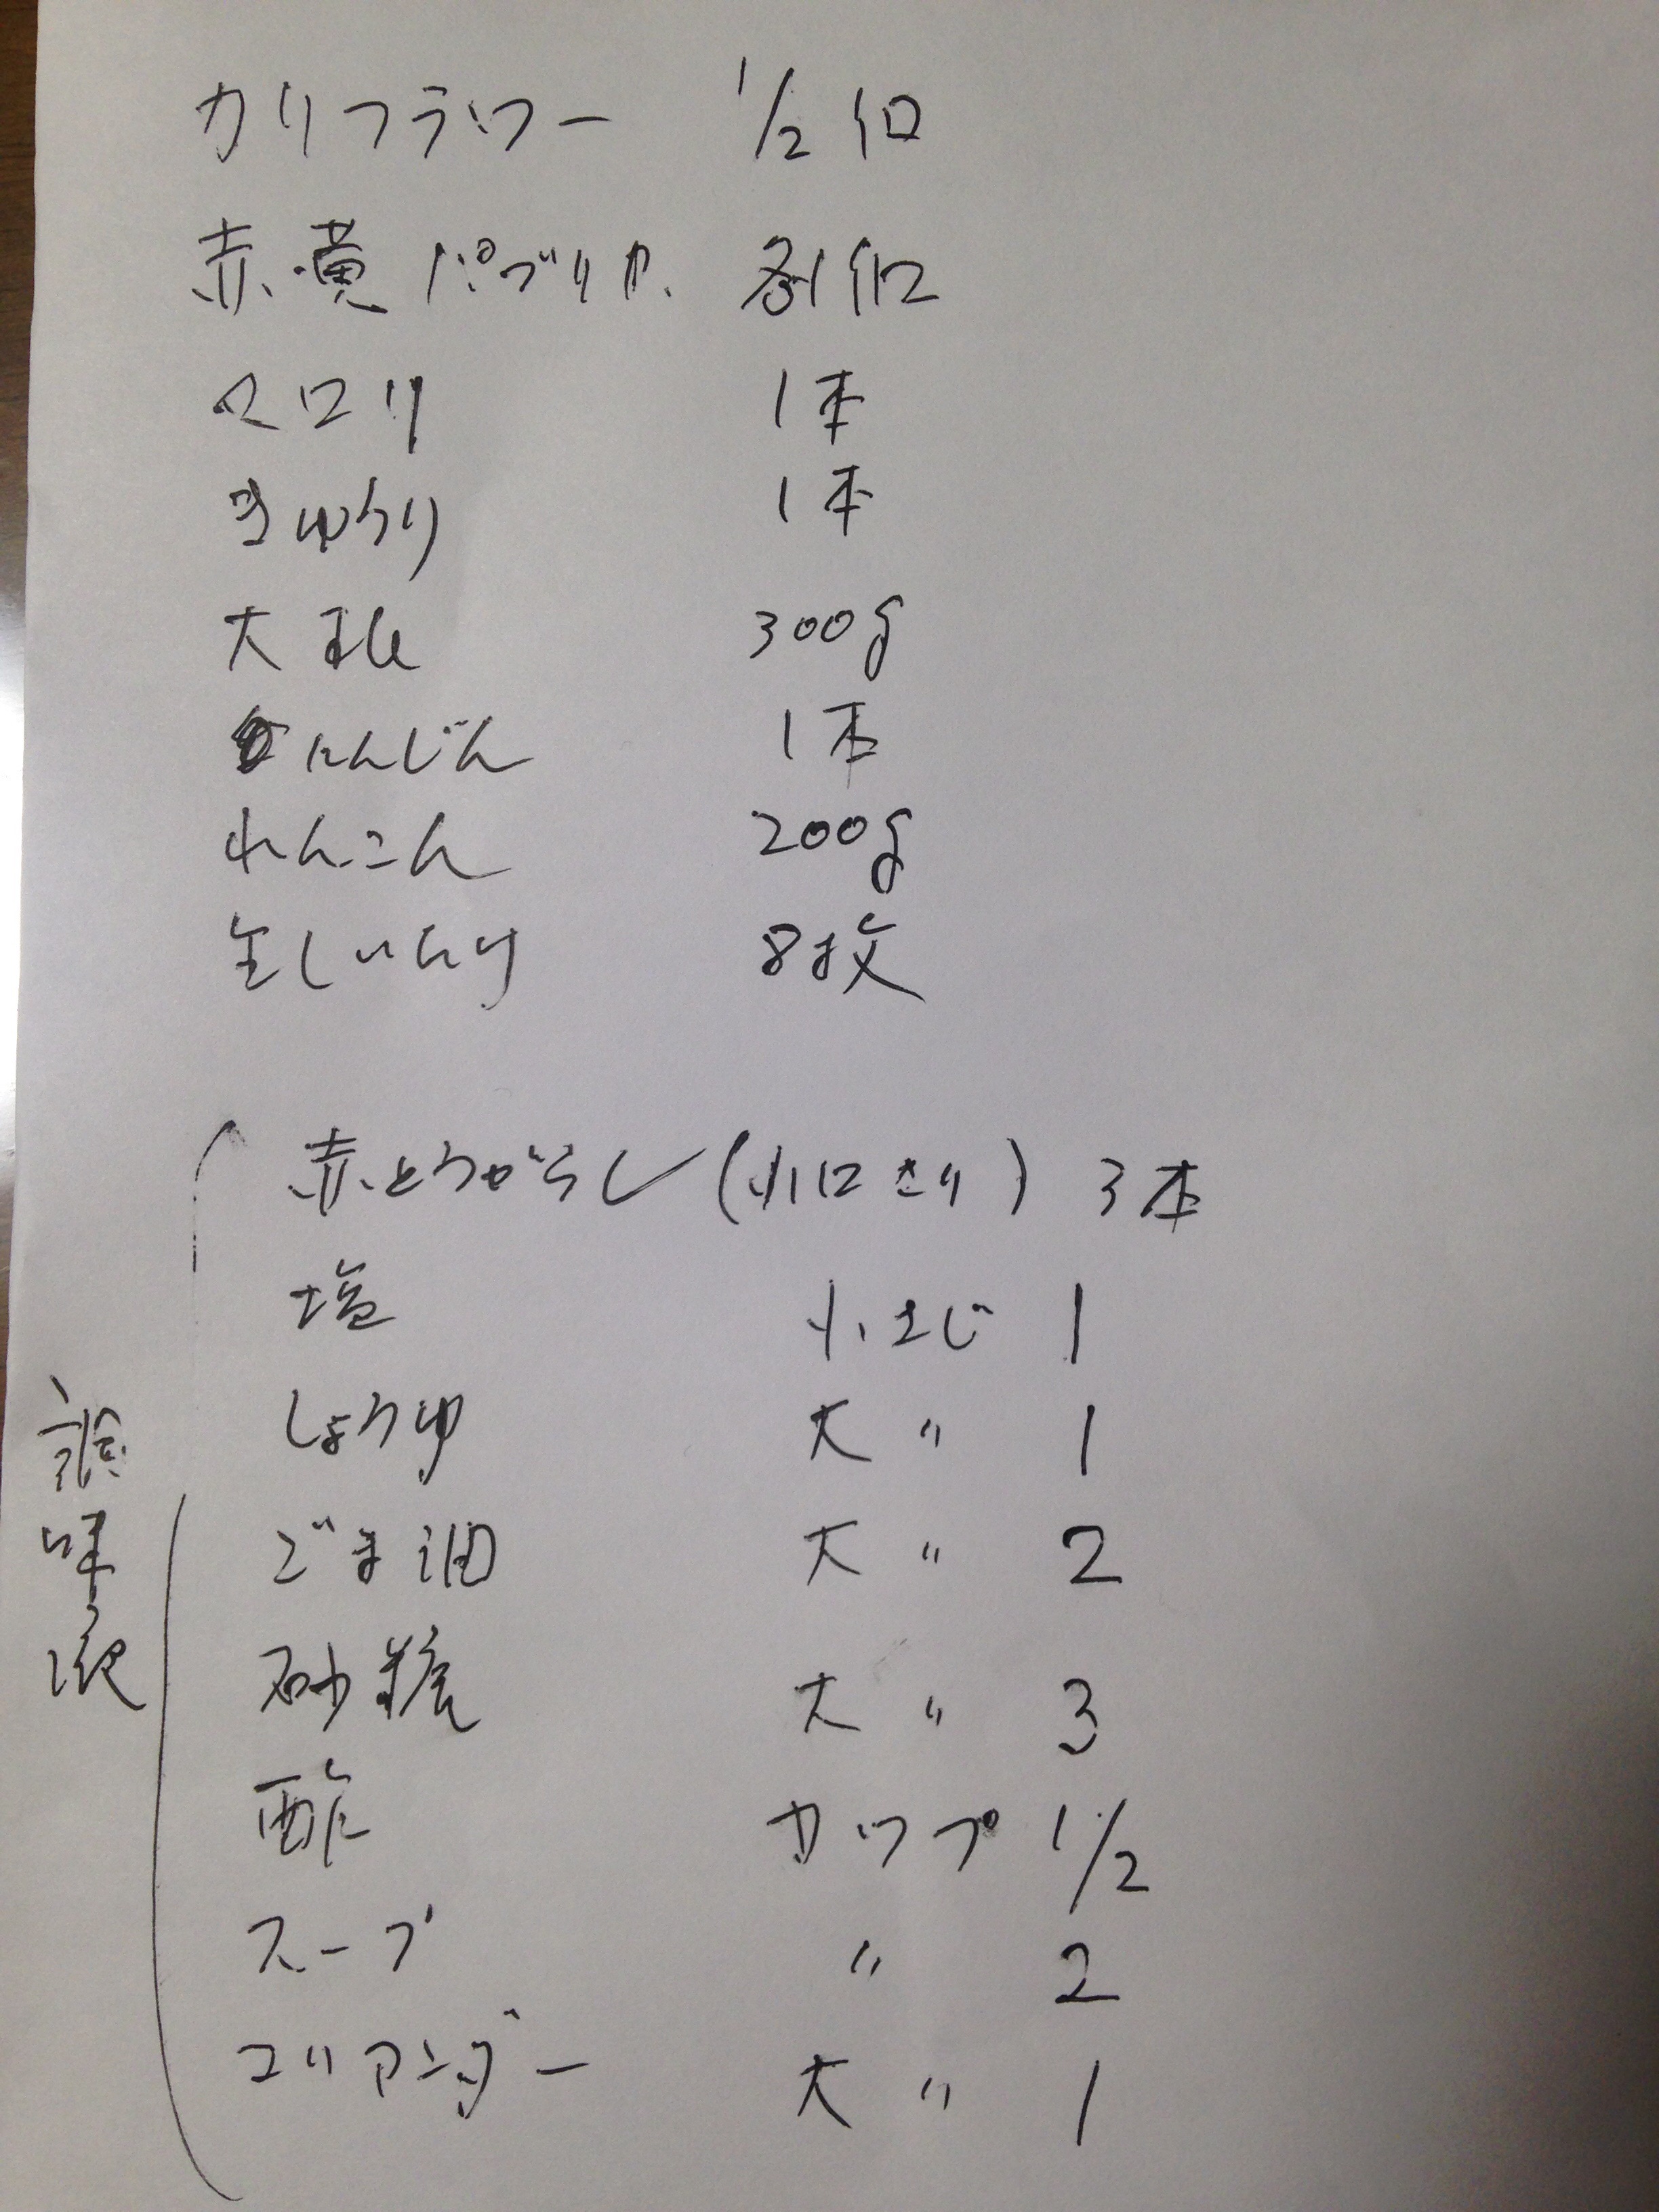 カリフラワー 1/2個
赤・黄パプリカ 各1個
セロリ 1本
きゅうり 1本
大根 300g
にんじん 1本
れんこん 200g
生しいたけ 8枚
赤とうがらし(小口きり) 3本
塩 小さじ 1
しょうゆ 大〃 1
ごま油 大〃 2
砂糖 大〃 3
酢 カップ 1/2
スープ 〃 2
コリアンダー 大〃 1
調味液